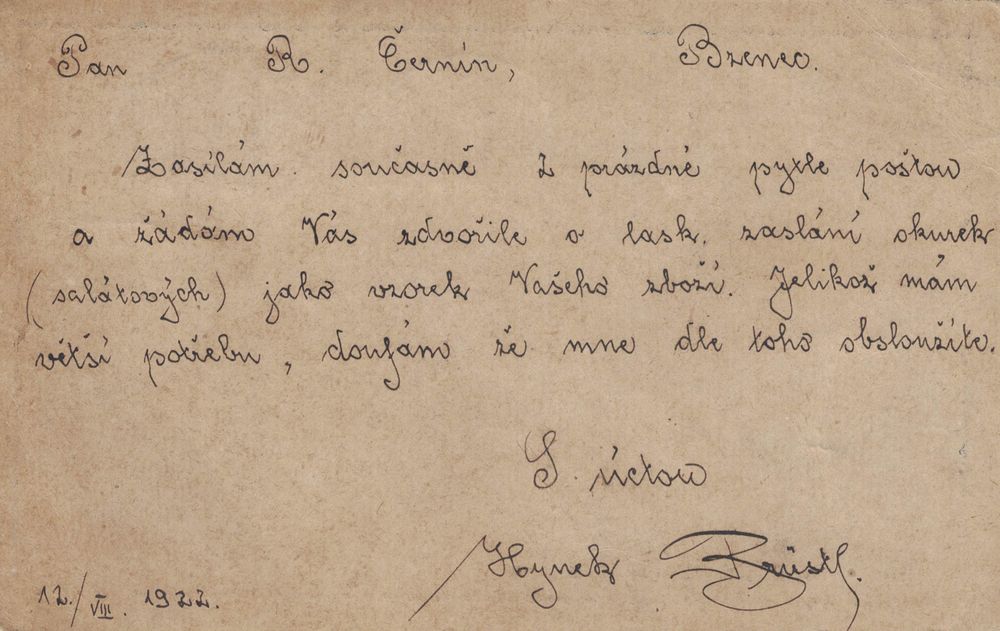 Pan R. Černín, Bzenec.
Zasílám současně 2 prázdné pytle poštou
a žádám Vás zdvořile o lask. zaslání okurek
(salátových) jako vzorek Vašeho zboží. Jelikož mám
větší potřebu, doufám že mne dle toho obsloužíte.
S úctou
Hynek
12./VIII. 1922.